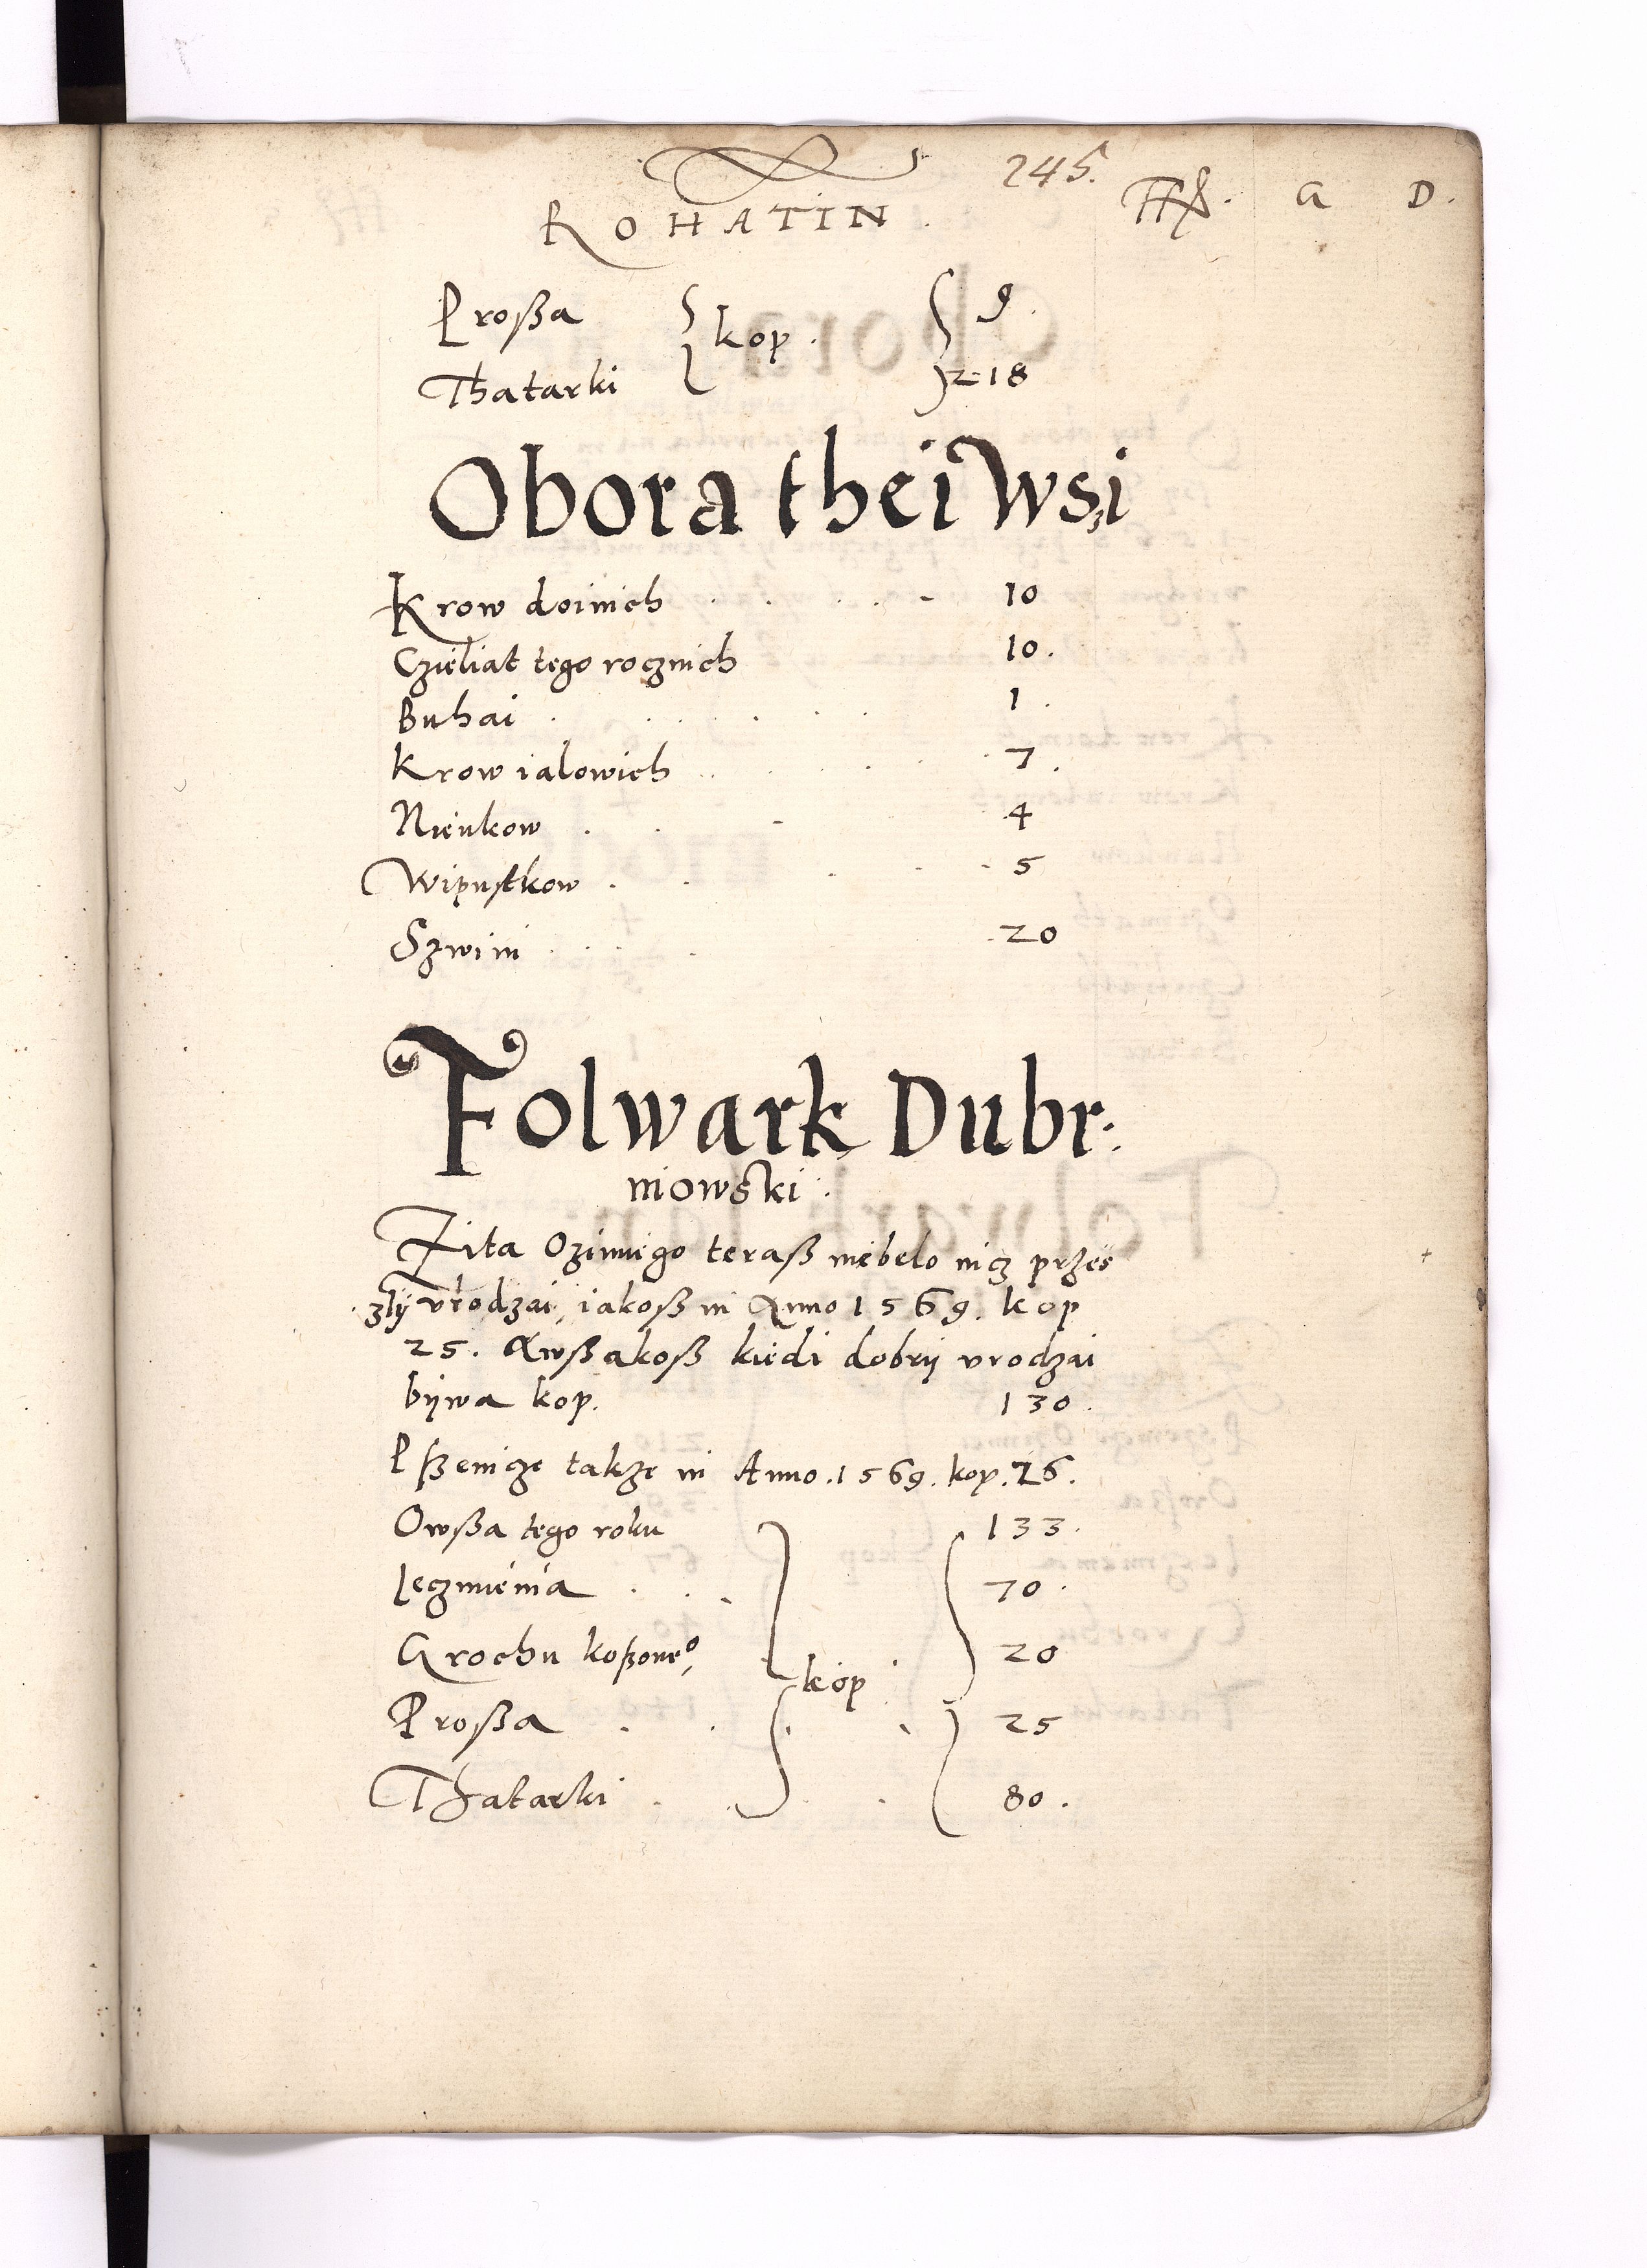 245.
ROHATIN.
FF. G D.
Proßa kop. 9.
Thatarki 218
Obora thei Wsi
Krow doinich 10
Czieliat tego rocznich 10.
Buhai 1.
Krow ialowich 7.
Nieukow 4
Wipustkow 5
Szwini 20
Folwark Dubr:
niowski.
Zita Ozimiego teraß niebelo nicz przes
zly vrodzai, iakoß in Anno 1569. kop
25. Awßakoß kiedi dobrij vrodzai
bijwa kop. 130.
Pszenicze takze in Anno.1569. kop.26.
Owßa tego roku 133.
Ieczmienia 70.
Grochu koßone° 20
kop
Proßa 25
Thatarki 80.